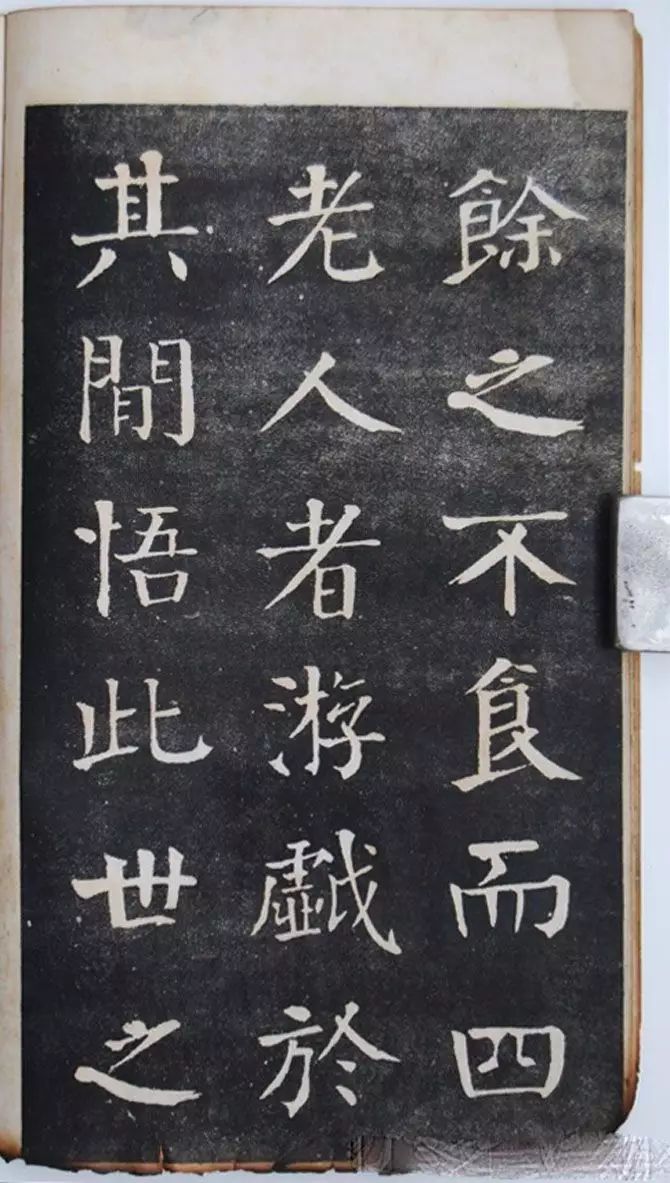 餘之不食而四
老人者游戯於
其間悟此世之